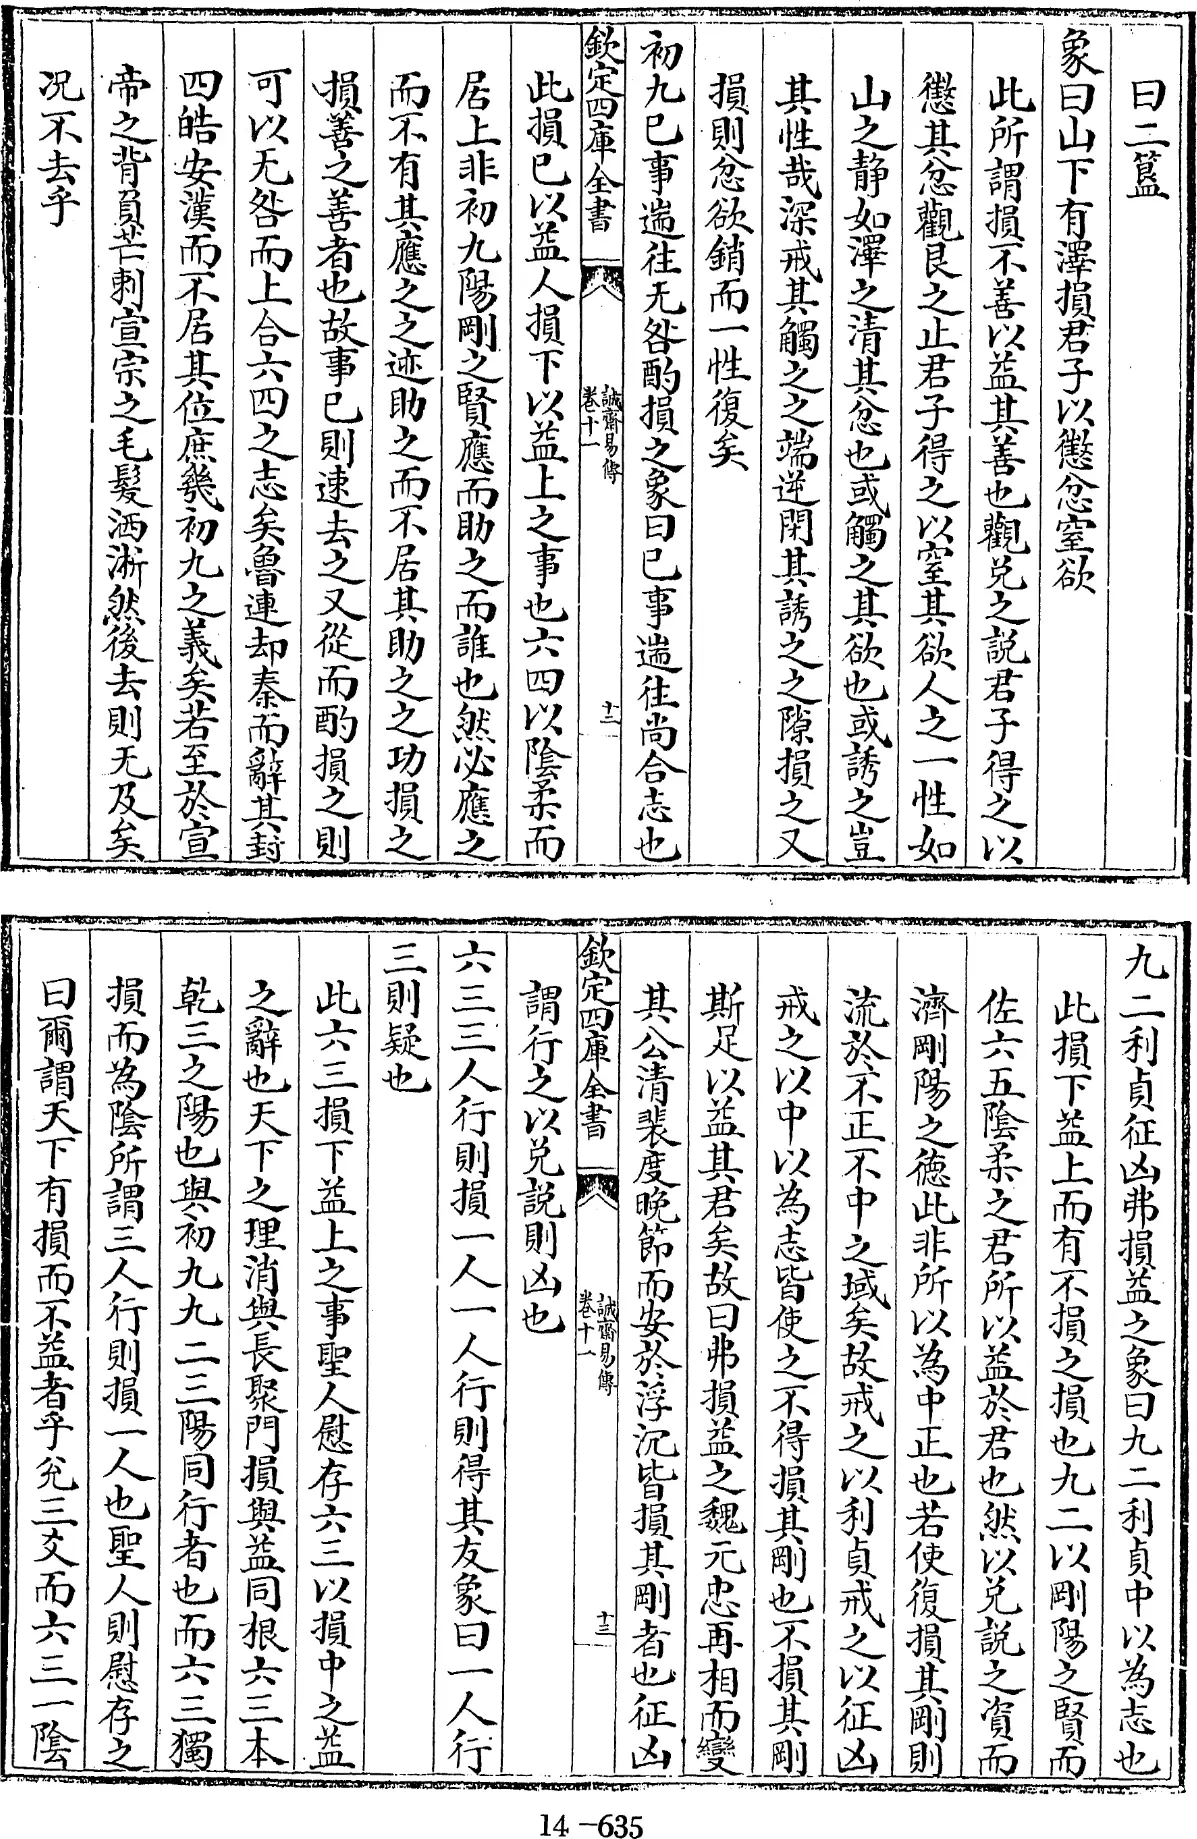 曰二簋
象曰山下有澤損君子以懲忿窒欲
此所謂損不善以益其善也觀兌之說君子得之以
懲其忿觀艮之止君子得之以窒其欲人之一性如
山之靜如澤之清其忿也或觸之其欲也或誘之豈
其性哉深戒其觸之之端逆閑其誘之之隙損之又
損則忿欲銷而一性復矣
初九已事遄往无咎酌損之象曰已事遄往尚合志也
欽定四庫全書
誠齋易傳
卷十一
十二
此損已以益人損下以益上之事也六四以陰柔而
居上非初九陽剛之賢應而助之而誰也然必應之
而不有其應之之迹助之而不居其助之之功損之
損善之善者也故事已則速去之又從而酌損之則
可以无咎而上合六四之志矣魯連却秦而辭其封
四皓安漢而不居其位庶幾初九之義矣若至於宣
帝之背負芒刺宣宗之毛髮洒淅然後去則无及矣
况不去乎
九二利貞征凶弗損益之象曰九二利貞中以為志也
此損下益上而有不損之損也九二以剛陽之賢而
佐六五陰柔之君所以益於君也然以兌說之資而
濟剛陽之德此非所以為中正也若使復損其剛則
流於不正不中之域矣故戒之以利貞戒之以征凶
戒之以中以為志皆使之不得損其剛也不損其剛
斯足以益其君矣故曰弗損益之魏元忠再相而變
其公清裴度晚節而安於浮沉皆損其剛者也征凶
欽定四庫全書
誠齋易傳
卷十一
十三
謂行之以兌說則凶也
六三三人行則損一人一人行則得其友象曰一人行
三則疑也
此六三損下益上之事聖人慰存六三以損中之益
之辭也天下之理消與長聚門損與益同根六三本
乾三之陽也與初九九二三陽同行者也而六三獨
損而為陰所謂三人行則損一人也聖人則慰存之
曰爾謂天下有損而不益者乎兌三爻而六三一陰
14-635